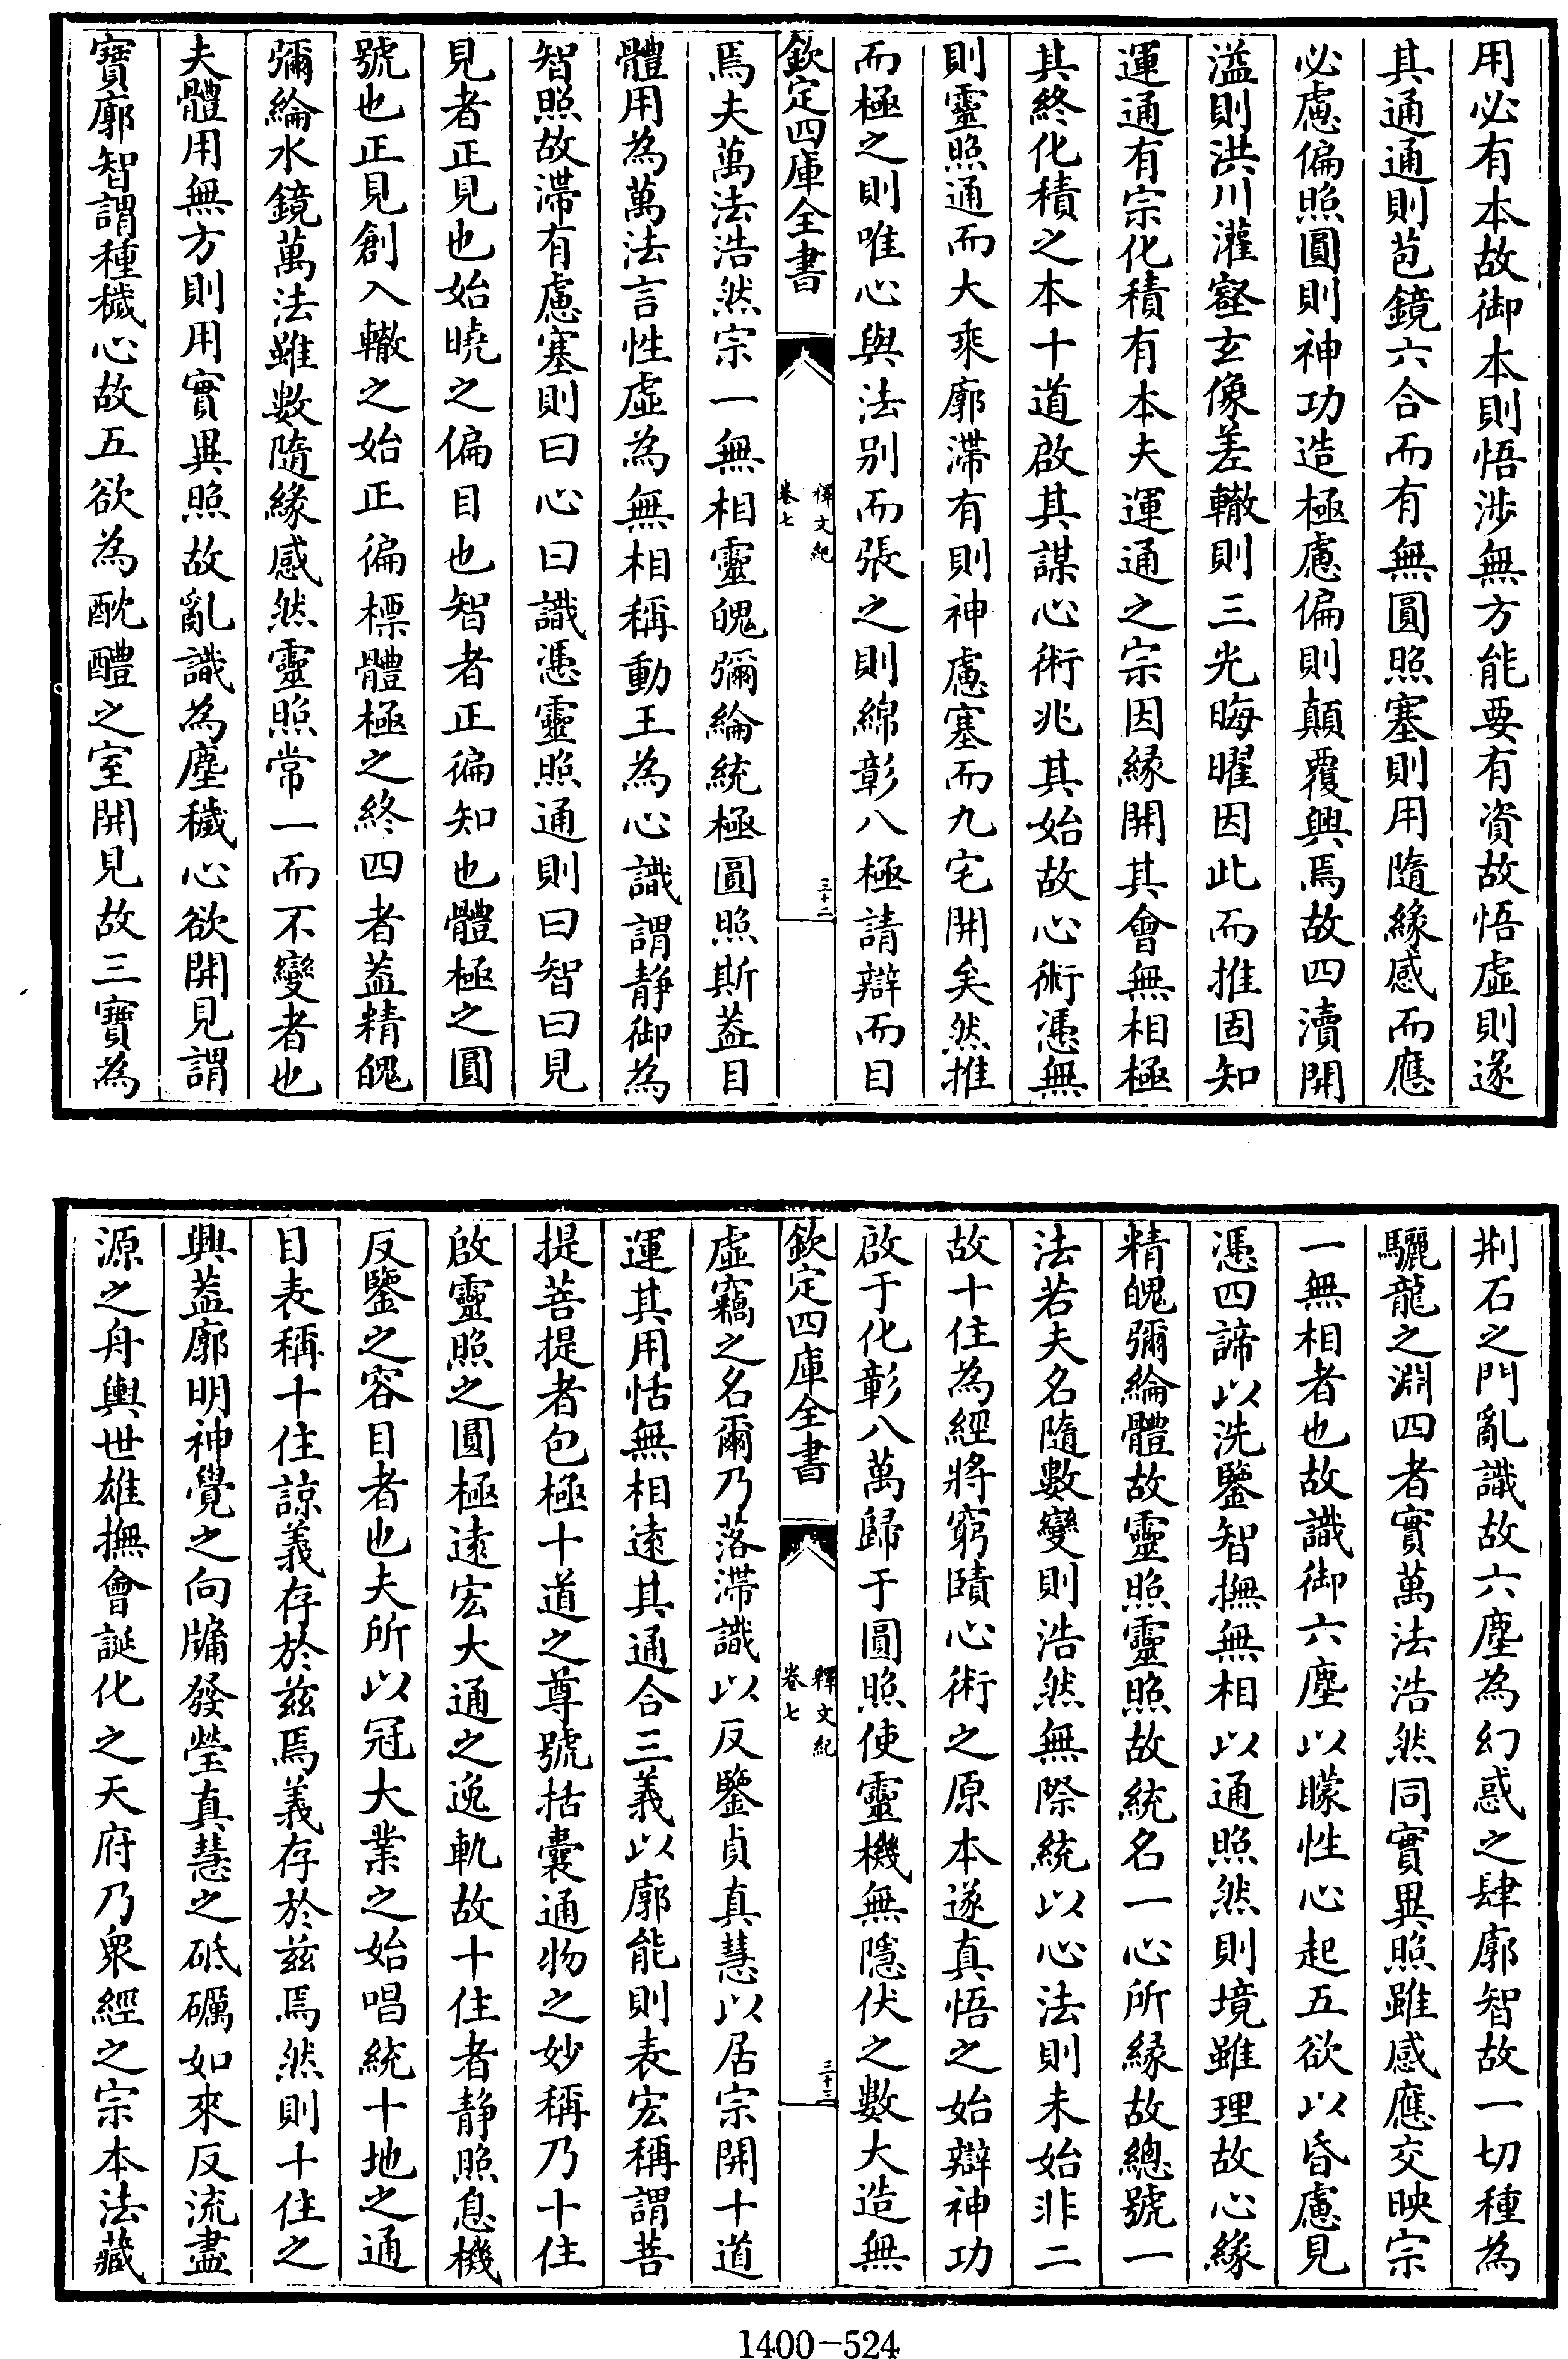 用必有本故御本則悟涉無方能要有資故悟虛則遂
其通通則苞鏡六合而有無圓照塞則用隨緣感而應
必慮偏照圓則神功造極慮偏則顛覆興焉故四瀆開
溢則洪川灌壑玄像差轍則三光晦曜因此而推固知
運通有宗化積有本夫運通之宗因緣開其會無相極
其終化積之本十道啟其謀心術兆其始故心術憑無
則靈照通而大乘廓滯有則神慮塞而九宅開矣然推
而極之則唯心與法别而張之則綿彰八極請辯而目
欽定四庫全書
釋文紀
卷七
三十二
焉夫萬法浩然宗一無相靈魄彌綸統極圓照斯葢目
體用為萬法言性虛為無相稱動王為心識謂静御為
智照故滯有慮塞則曰心曰識憑靈照通則曰智曰見
見者正見也始曉之偏目也智者正徧知也體極之圓
號也正見創入轍之始正徧標體極之終四者葢精魄
彌綸水鏡萬法雖數隨緣感然靈照常一而不變者也
夫體用無方則用實異照故亂識為塵穢心欲開見謂
寶廓智謂種穢心故五欲為酖醴之室開見故三寶為
荆石之門亂識故六塵為幻惑之肆廓智故一切種為
驪龍之淵四者實萬法浩然同實異照雖感應交映宗
一無相者也故識御六塵以矇性心起五欲以昏慮見
憑四諦以洗鑒智撫無相以通照然則境雖理故心緣
精魄彌綸體故靈照靈照故統名一心所緣故總號一
法若夫名隨數變則浩然無際統以心法則未始非二
故十住為經將窮賾心術之原本遂真悟之始辯神功
啟于化彰八萬歸于圓照使靈機無隱伏之數大造無
欽定四庫全書
釋文紀
卷七
三十三
虛竊之名爾乃落滯識以反鑒貞真慧以居宗開十道
運其用恬無相遠其通合三義以廓能則表宏稱謂菩
提菩提者包極十道之尊號括囊通物之妙稱乃十住
啟靈照之圓極遠宏大通之逸軌故十住者静照息機
反鑒之容目者也夫所以冠大業之始唱統十地之通
目表稱十住諒義存於兹焉義存於兹焉然則十住之
興葢廓明神覺之向牖發瑩真慧之砥礪如來反流盡
源之舟輿世雄撫會誕化之天府乃衆經之宗本法藏
1400-524